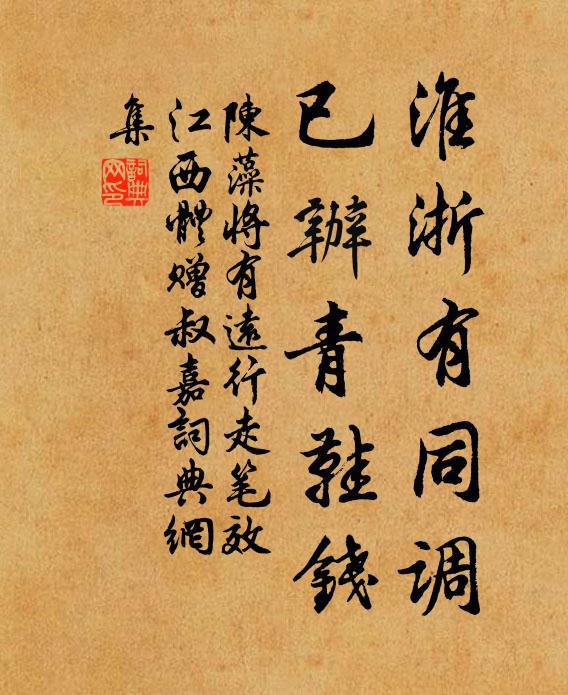 淮浙有同调
已辦青鞋錢
陳藻將有遠行走笔效
江西體赠叔嘉詞典網
集
詞典
网印